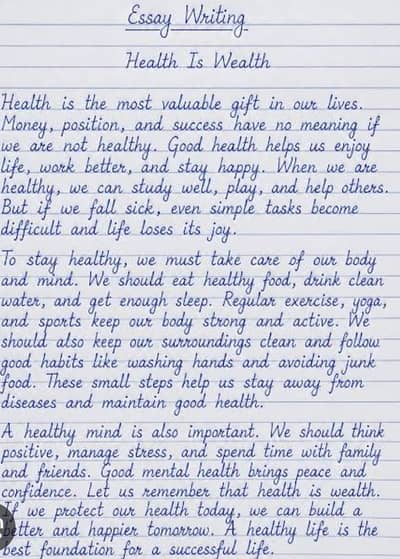 Essay Writing
Health Is Wealth
Health is the most valuable gift in our lives.
Money, position, and success have no meaning if
we are not healthy. Good health helps us enjoy
life, work better, and stay happy. When we are
healthy, we can study well, play, and help others.
But if we fall sick, even simple tasks become
difficult and life loses its joy.
To stay healthy, we must take care of our body
and mind. We should eat healthy food, drink clean
water, and get enough sleep. Regular exercise, yoga,
and sports keep our body strong and active. We
should also keep our surroundings clean and follow
good habits like washing hands and avoiding junk
food. These small steps help us stay away from
diseases and maintain good health.
A healthy mind is also important. We should think
positive, manage stress, and spend time with family
and friends. Good mental health brings peace and
confidence. Let us remember that health is wealth.
If we protect our health today, we can build a
better and happier tomorrow. A healthy life is the
best foundation for a successful life.